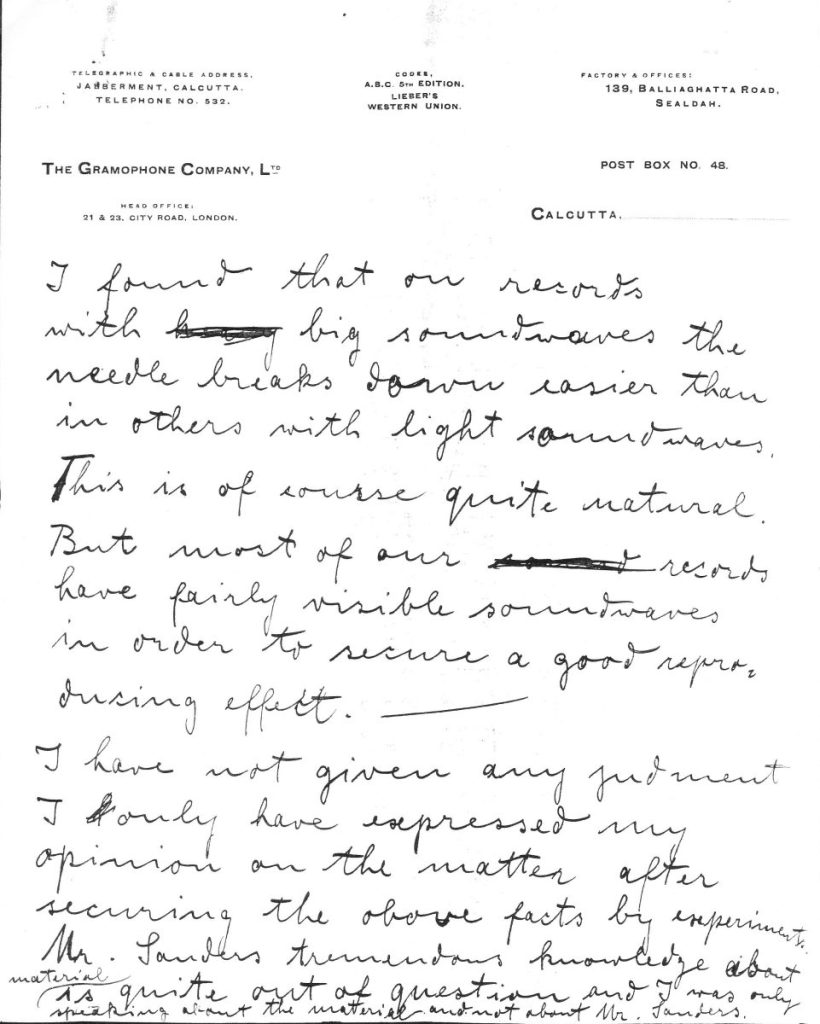 TELEGRAPHIC & CABLE ADDRESS,
JABBERMENT, CALCUTTA.
TELEPHONE NO. 532.
CODES,
A.B.C. 5TH EDITION.
LIEBER'S
WESTERN UNION.
FACTORY & OFFICES:
139, BALLIAGHATTA ROAD,
SEALDAH.
THE GRAMOPHONE COMPANY, LTD
HEAD OFFICE:
21 & 23, CITY ROAD, LONDON.
POST BOX NO. 48.
CALCUTTA.
I found that on records
with big soundwaves the
needle breaks down easier than
in others with light soundwaves.
This is of course quite natural.
But most of our records
have fairly visible soundwaves
in order to secure a good repro=
ducing effect. —
I have not given any judment
I only have expressed my
opinion on the matter after
securing the above facts by experiments.
Mr. Sanders tremendous knowledge about
material
is quite out of question and I was only
speaking about the material and not about Mr. Sanders.